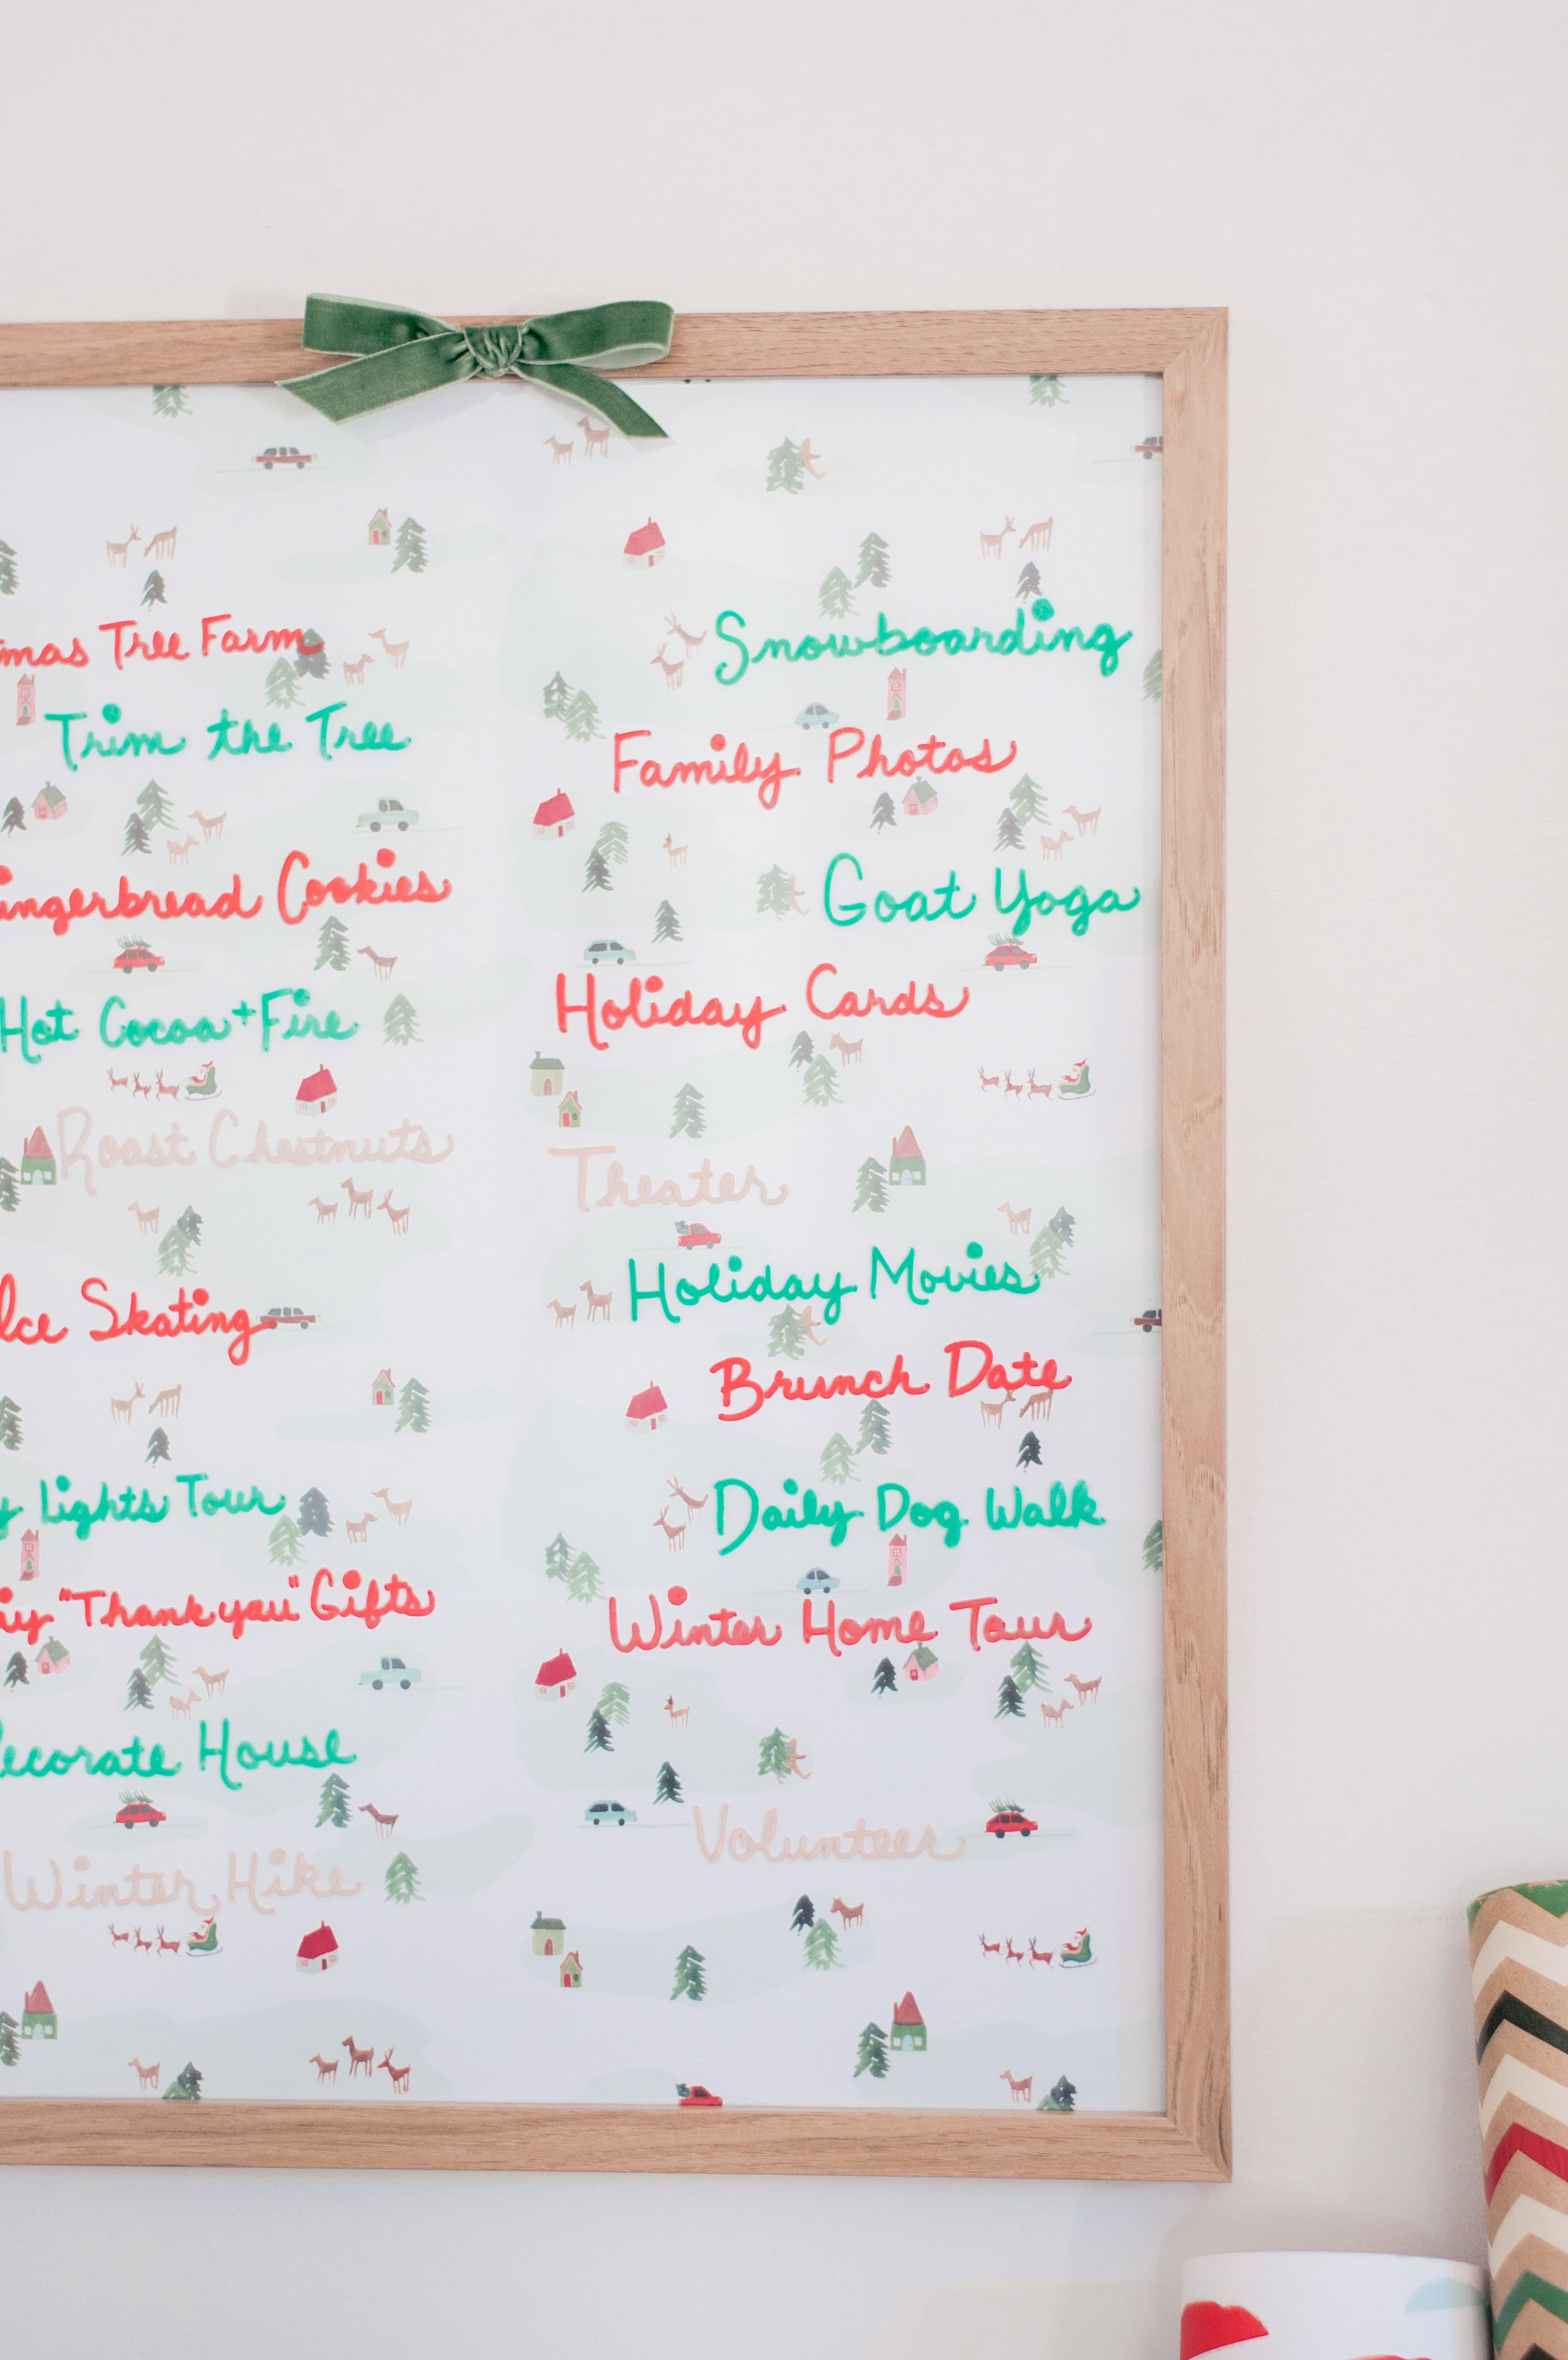 mas Tree Farm
Trim the Tree
ingerbread Cookies
Hot Cocoa + Fire
Roast Chestnuts
Ice Skating
y Lights Tour
iy "Thank you" Gifts
ecorate House
Winter Hike
Snowboarding
Family Photos
Goat Yoga
Holiday Cards
Theater
Holiday Movies
Brunch Date
Daily Dog Walk
Winter Home Tour
Volunteer